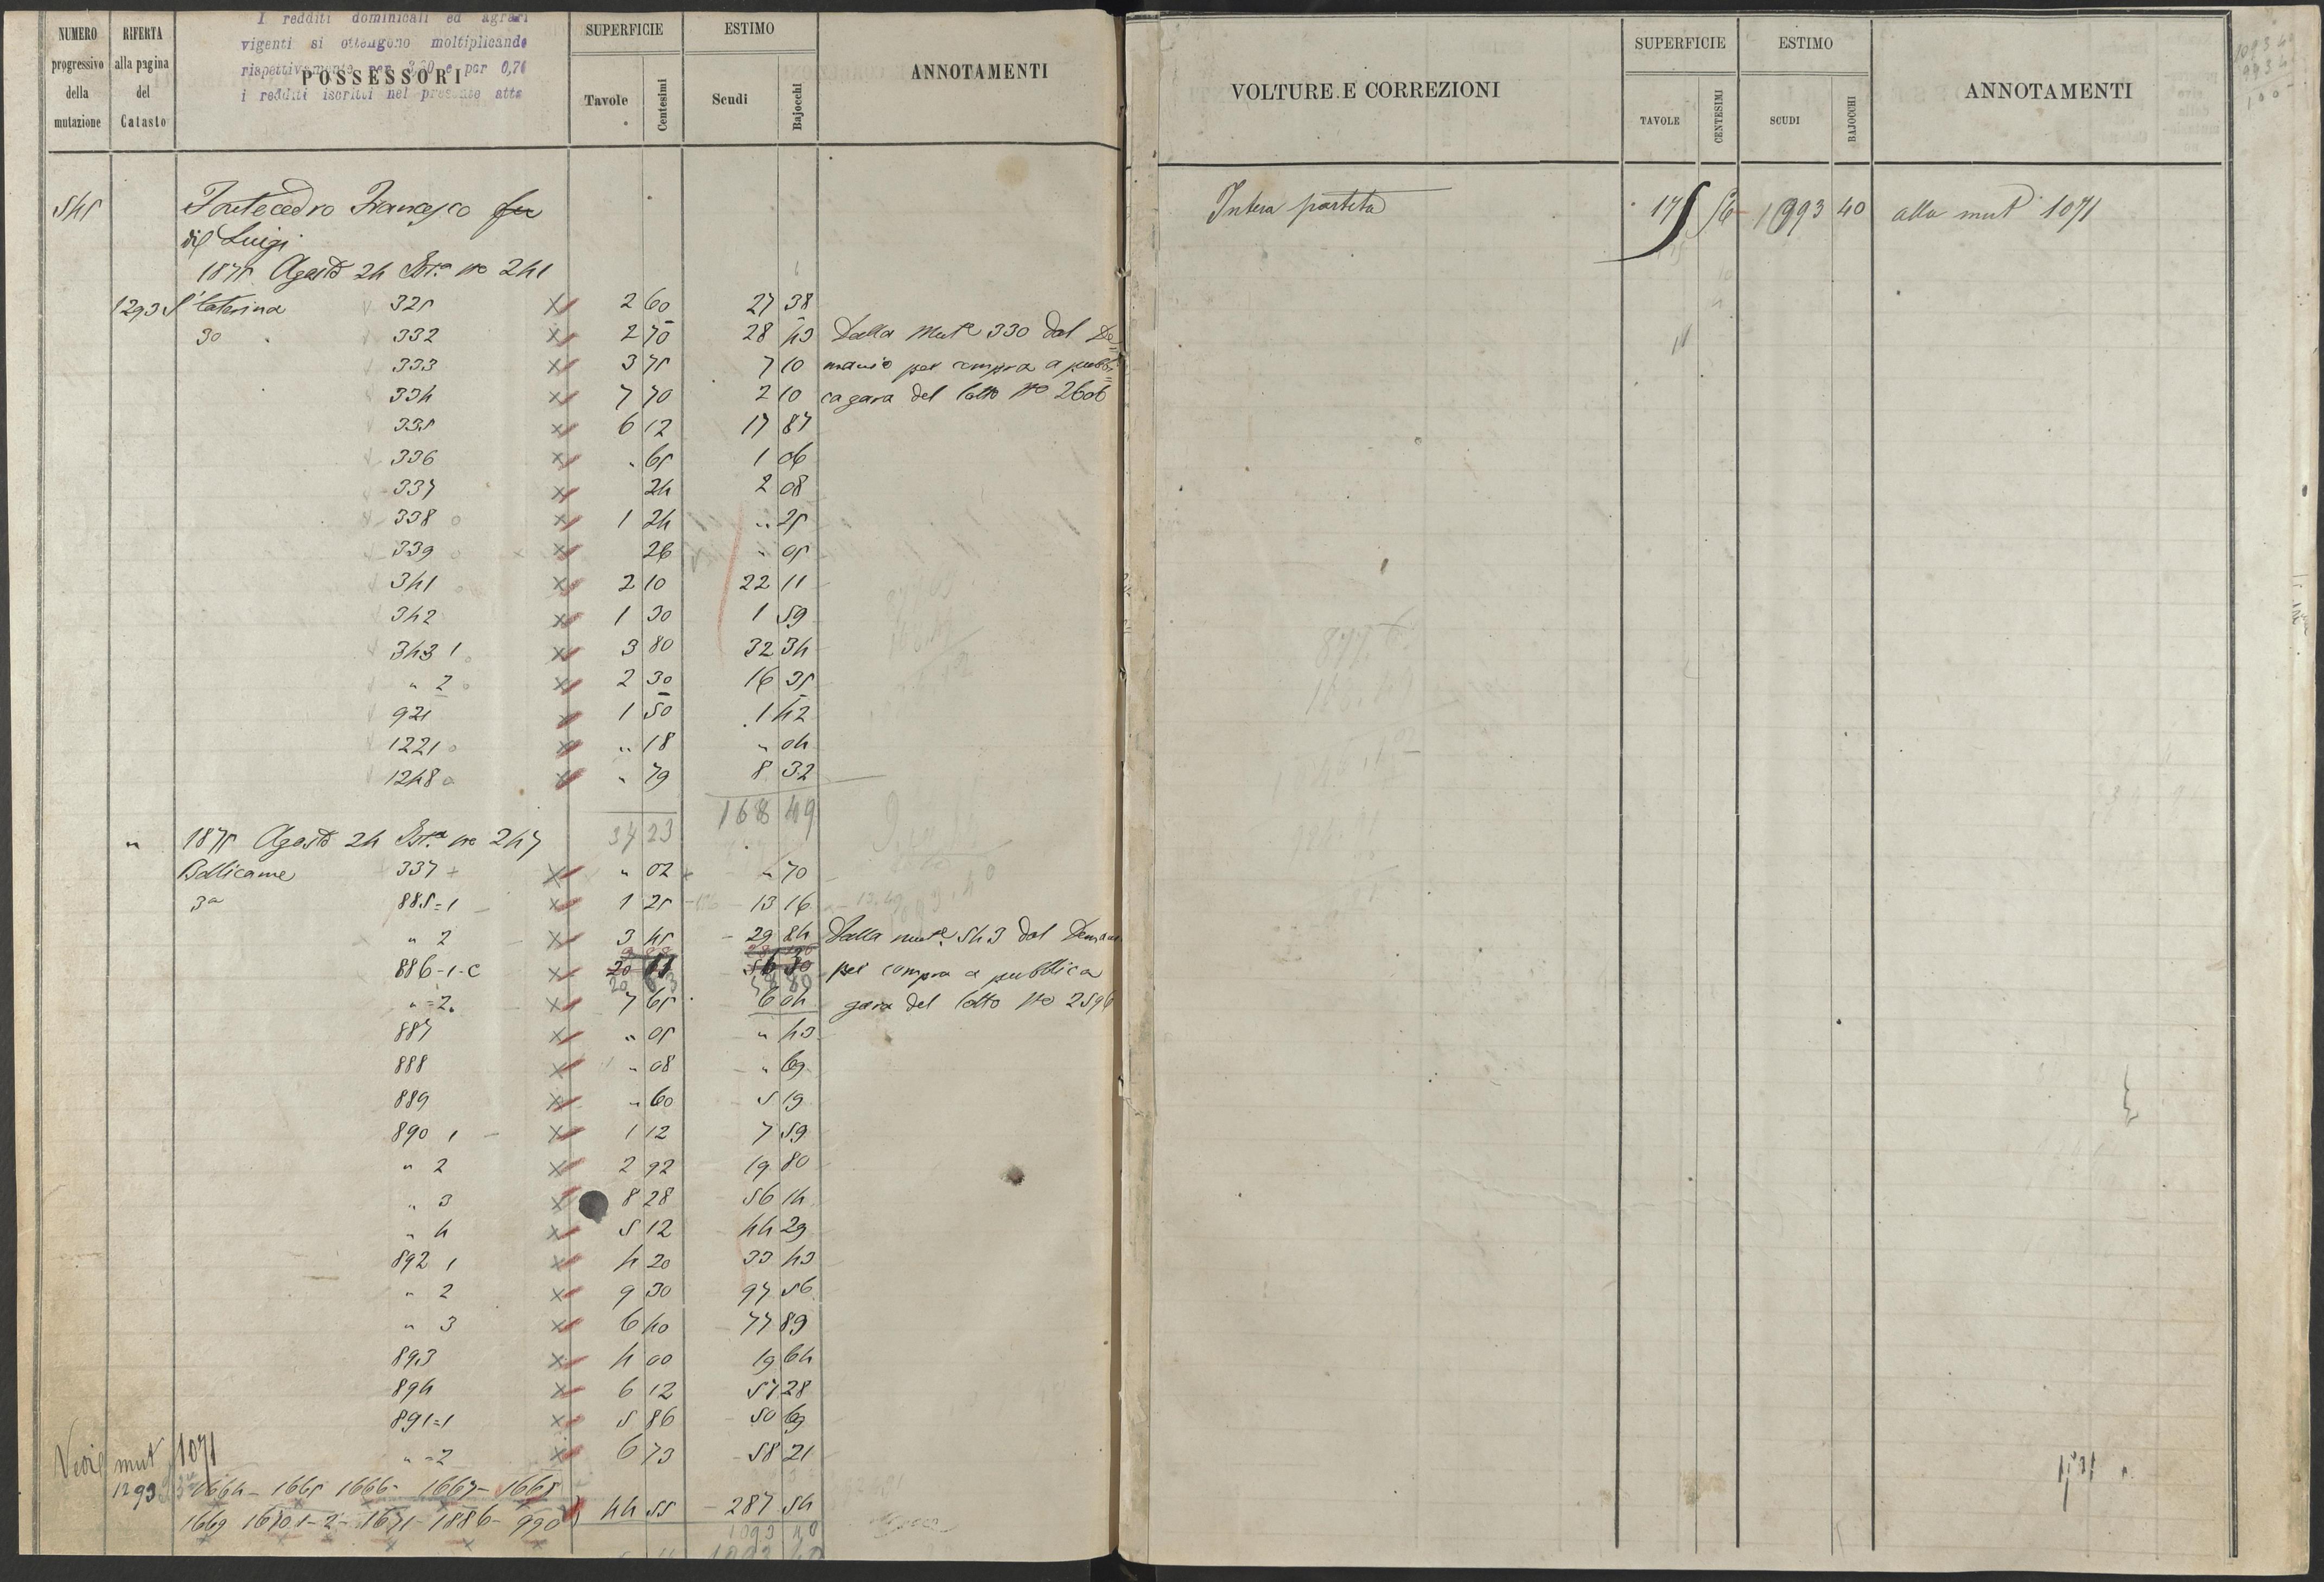 NUMERO progressivo della mutazione
RIFERTA alla pagina del Catasto
I redditi dominicali ed agrari
vigenti si ottengono moltiplicando
rispettivamente per 3,20 e per 0,70
i redditi iscritti nel presente atto
POSSESSORI
SUPERFICIE
Tavole Centesimi
ESTIMO
Scudi Bajocchi
ANNOTAMENTI
545 Pontecedro Francesco fu
di Luigi
1875 Agosto 24 No 241
1293 Sa Caterina 325 2 60 27 38
332 2 70 28 43 Dalla Mute 330 dal De
333 3 75 7 10 manio per compra a pubbli
334 7 70 2 10 ca gara del lotto No 2606
335 6 12 17 87
336 " 65 1 06
337 24 2 08
338 1 24 " 25
339 26 " 05
341 2 10 22 11
342 1 30 1 59
343 1 3 80 32 34
" 2 2 30 16 35
921 1 50 1 42
1221 " 18 " 04
1248 " 79 8 32
168 49
37 23
" 1875 Agosto 24 No 247
Bollicame 337 " 02 " 70
3a 885=1 1 25 13 16
" 2 3 45 29 84 Dalla mute 543 dal Demanio
886-1-C 20 63 per compra a pubblica
"=2 7 65 6 04 gara del lotto No 2596
887 " 05 " 43
888 " 08 " 69
889 " 60 5 19
890 1 1 12 7 59
" 2 2 92 19 80
" 3 8 28 56 14
" 4 5 12 44 29
892 1 4 20 33 43
" 2 9 30 97 56
" 3 6 40 77 89
893 4 00 19 64
894 6 12 57 28
891=1 5 86 50 69
"=2 6 73 58 21
Vedi mut 1071
1293 1664 - 1665 1666 - 1667 - 1668
1669 1670 1-2- 1671 - 1886 - 990 44 55 287 54
1093 40
VOLTURE E CORREZIONI
SUPERFICIE
TAVOLE CENTESIMI
ESTIMO
SCUDI BAJOCCHI
ANNOTAMENTI
Intera partita 175 56 1093 40 alla mut 1071